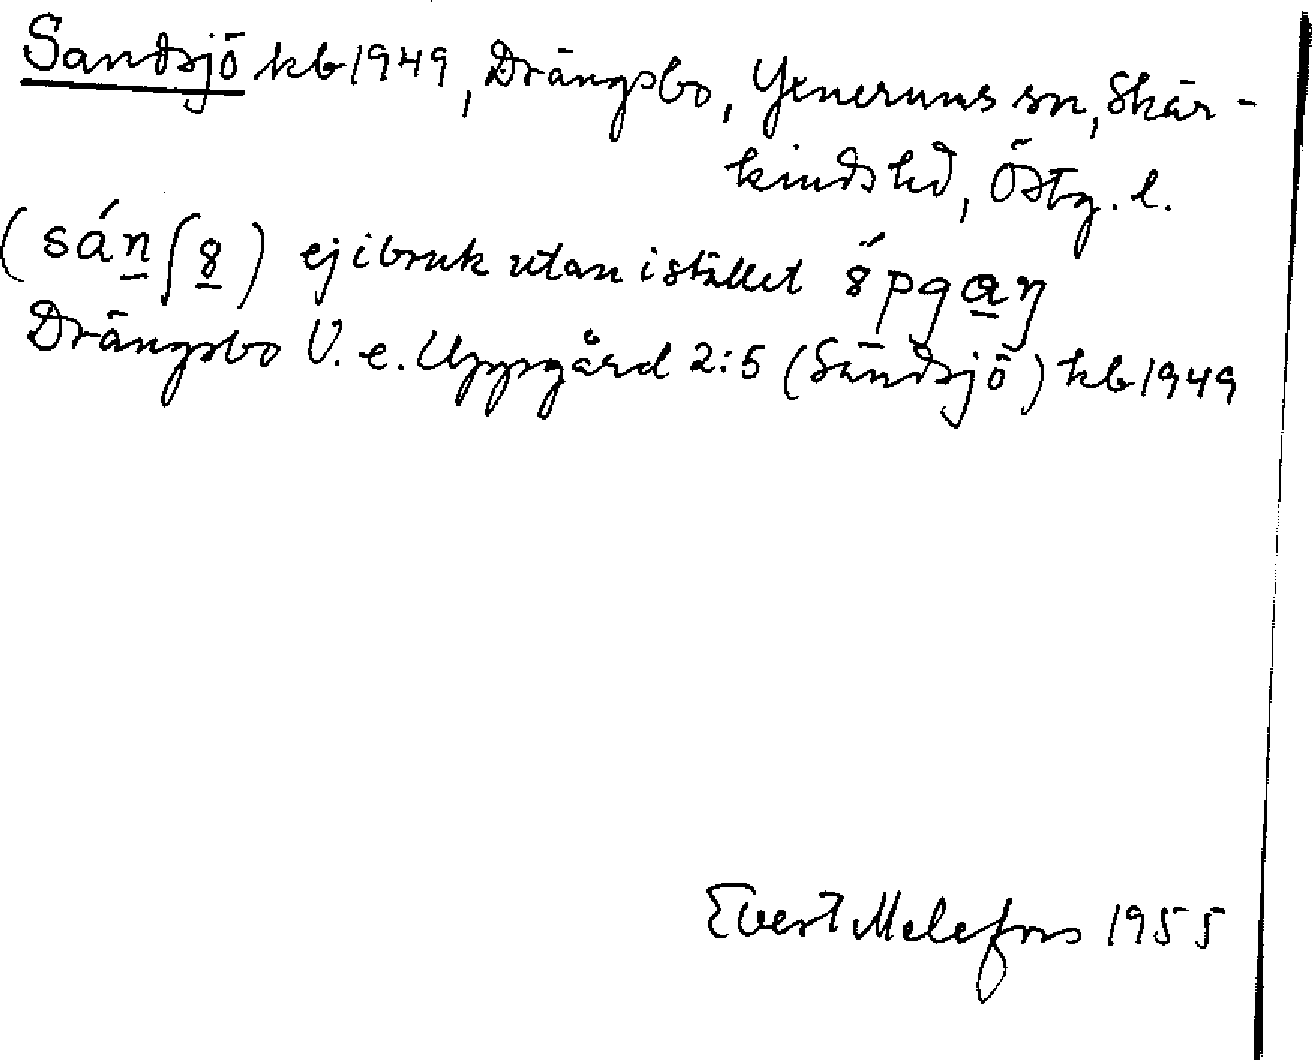 Sandsjö kb 1949, Drängsbo, Yxnerums sn, Skär-
kinds hd, Östg. l.
(sán̲ʃ8̲) ej i bruk utan istället 8́pga̲ŋ
Drängsbo V. e. Uppgård 2:5 (Sandsjö) kb 1949
Evert Melefors 1955